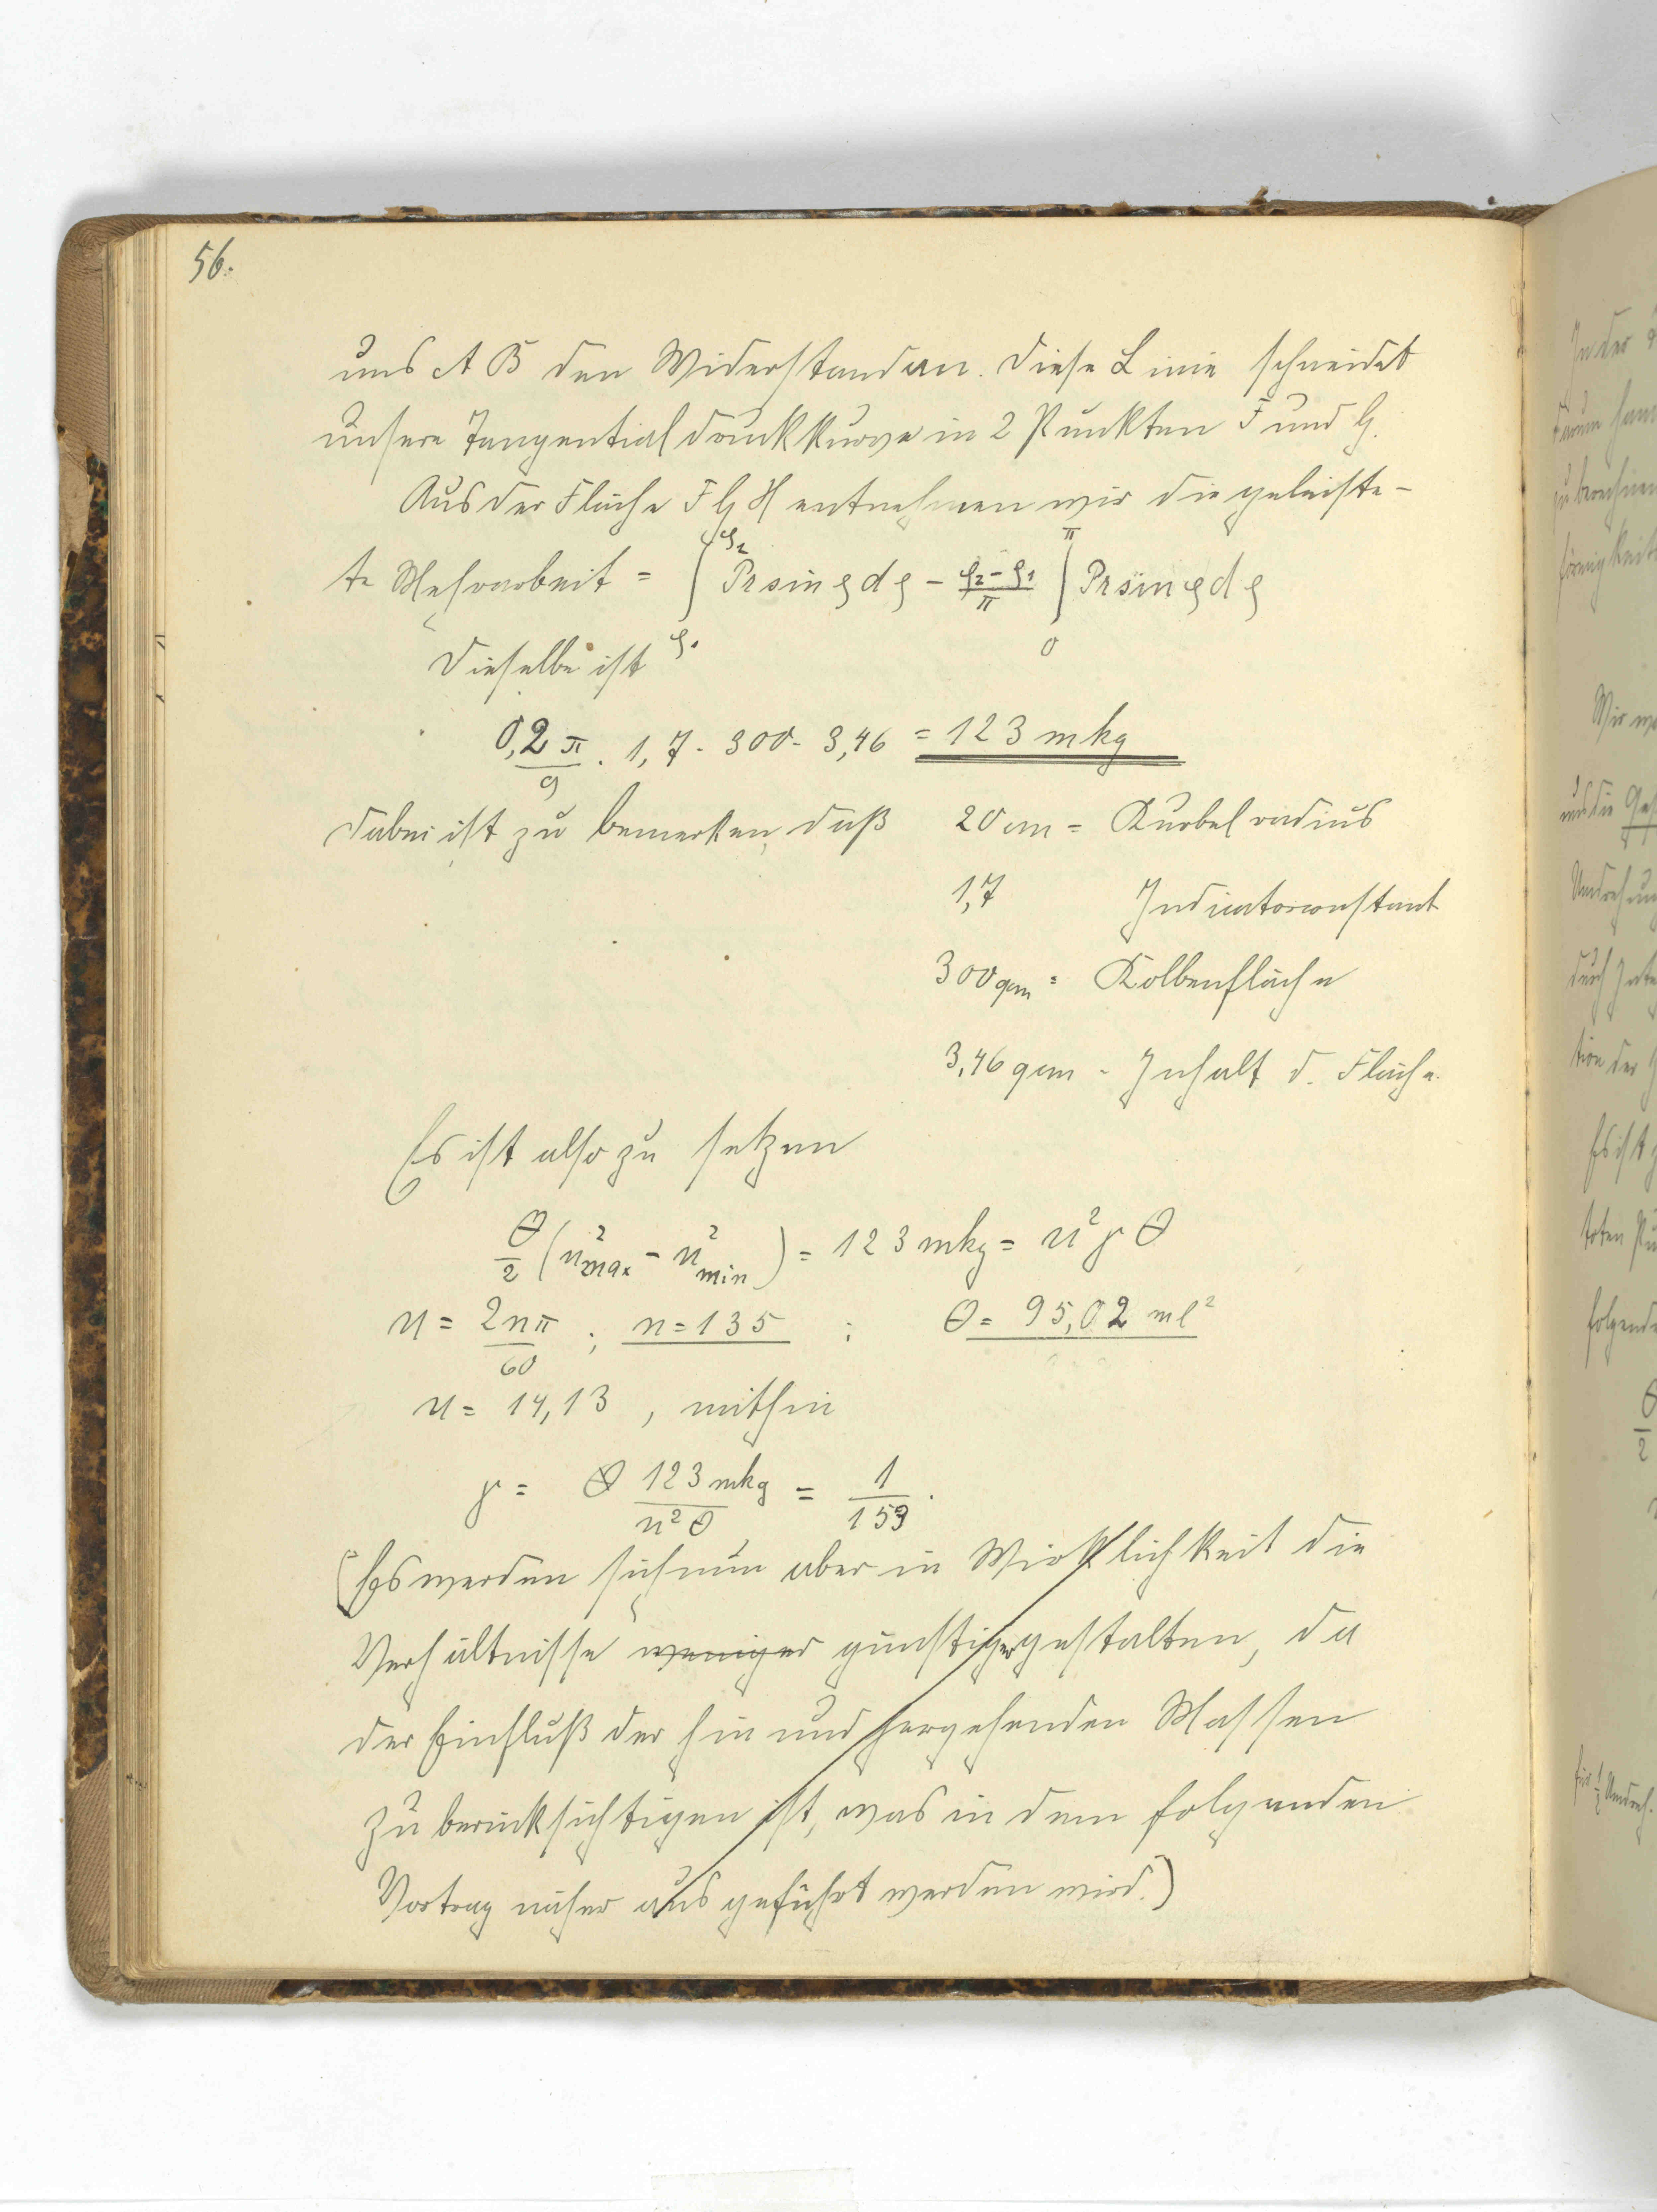 56.
uns A B den Widerstand an. Diese Linie schneidet
unsere Tangentialdruckkurve in 2 Punkten F und G.
Aus der Fläche F G H entnehmen wir die geleiste-
te Mehrarbeit = ∫_{φ₁}^{φ₂} Pr sin φ dφ - (φ₂-φ₁)/π ∫_0^π Pr sin φ dφ
Dieselbe ist
0,2 π/9 . 1,7 . 300 . 3,46 = 123 mkg
Dabei ist zu bemerken, daß 20 cm = Kurbelradius
1,7 Indicatorconstant
300 qcm = Kolbenfläche
3,46 qcm - Inhalt d. Fläche.
Es ist also zu setzen
Θ/2 (u²max - u²min) = 123 mkg = u² γ Θ
u = 2nπ/60 ; n = 135 ; Θ = 95,02 ml²
u = 14,13 , mithin
γ = Θ 123 mkg/u²Θ = 1/153.
(Es werden sich nun aber in Wirklichkeit die
Verhältnisse weniger günstiger gestalten, da
der Einfluß der hin und hergehenden Massen
zu berücksichtigen ist, was in dem folgenden
Vortrag näher ausgeführt werden wird.)
In der
zu berechnen
Wir
uns die
durch
tion der
Es ist
toten
folgende
Θ/2
für ½ Umdreh.